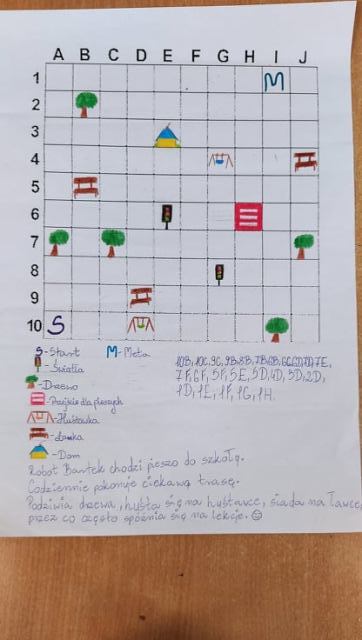 A B C D E F G H I J
1 M
2
3
4
5
6
7
8
9
10 S
S-Start M-Meta
-Światła
-Drzewo
-Przejście dla pieszych
-Huśtawka
-Ławka
-Dom
10B, 10C, 9C, 9B, 8B, 7B, 6B, 6C, 6D, 7D, 7E,
7F, 6F, 5F, 5E, 5D, 4D, 3D, 2D,
1D, 1E, 1F, 1G, 1H.
Robot Bartek chodzi pieszo do szkoły.
Codziennie pokonuje ciekawą trasę.
Podziwia drzewa, huśta się na huśtawce, siada na ławce,
przez co często spóźnia się na lekcje. ☺